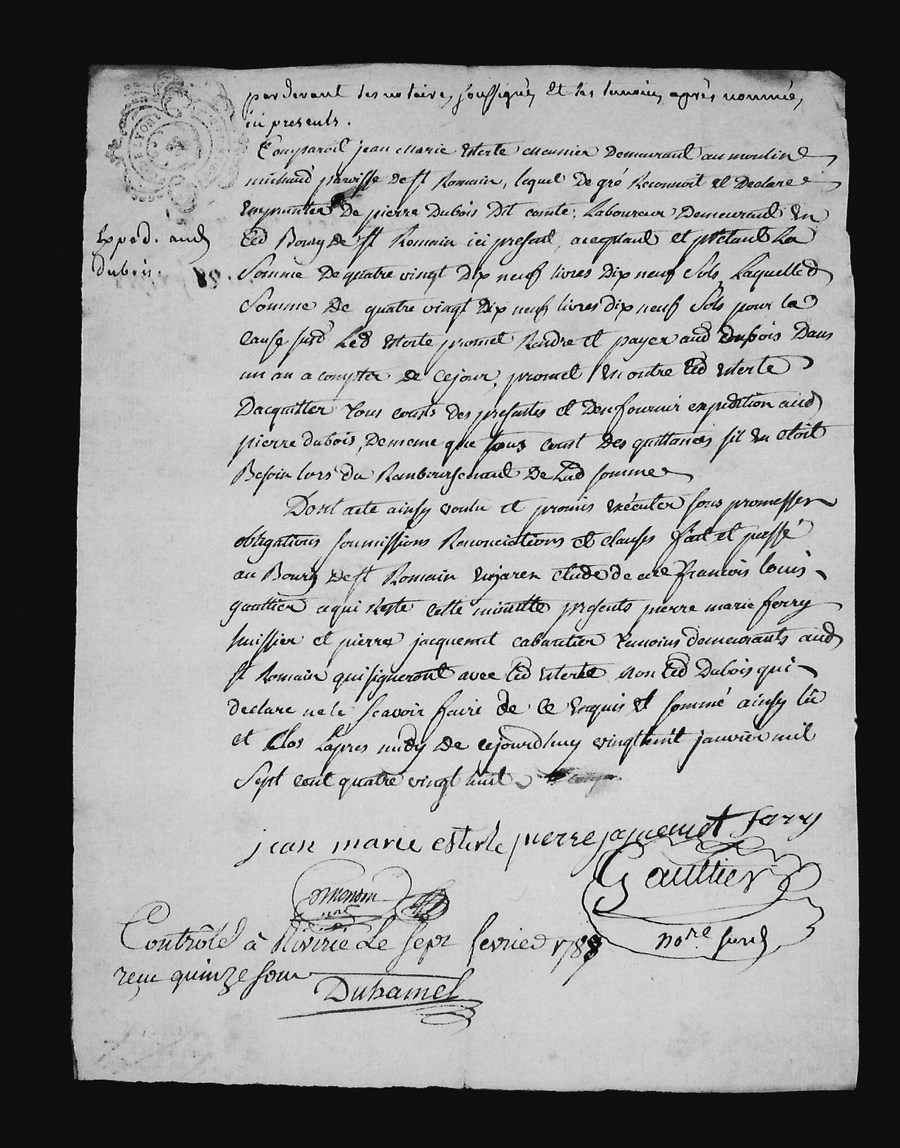 par devant les notaires soussignés et les temoins après nommés,
ici presents.
Comparoit jean marie Esterle meunier Demeurant au moulin
michaud parroisse de st Romain, lequel De gré Reconnoit et Declare
Emprunter De pierre Dubois Dit comte, Laboureur Demeurant En
Led Bourg de st Romain ici present, acceptant et pretant La
Somme De quatre vingt Dix neuf livres Dix neuf Sols, Laquelle d
Somme De quatre vingt Dix neuf livres dix neuf Sols pour la
cause susd Led Esterle promet Rendre et payer aud Dubois Dans
un an a compter De ce jour, promet En outre Led Esterle
Dacquitter tous cousts des presentes et Den fournir expedition aud
pierre dubois, De meme que tous coust Des quittances sil En etoit
Besoin lors du Remboursement De Lad somme
Dont acte ainsy voulu et promis Exécuter sous promesses
obligations soumissions Renonciations et clauses fait et passé
au Bourg De st Romain En jarez etude de me francois louis
gaultier a qui Reste cette minutte presents pierre marie ferry
huissier et pierre jacquemot cabaretier temoins demeurants aud
st Romain qui signeront avec Led Esterle Non Led Dubois qui
declare ne le scavoir faire De ce Enquis et sommé ainsy lû
et Clos Lapres midy De cejourdhuy vingt huit janvier mil
Sept cent quatre vingt huit
Exped. aud
dubois.
jean marie esterle pierre jaquemot ferry
Gaultier
nore susd
Controlé à Riverie Le sept fevrier 1788
reçu quinze sous
Duhamel